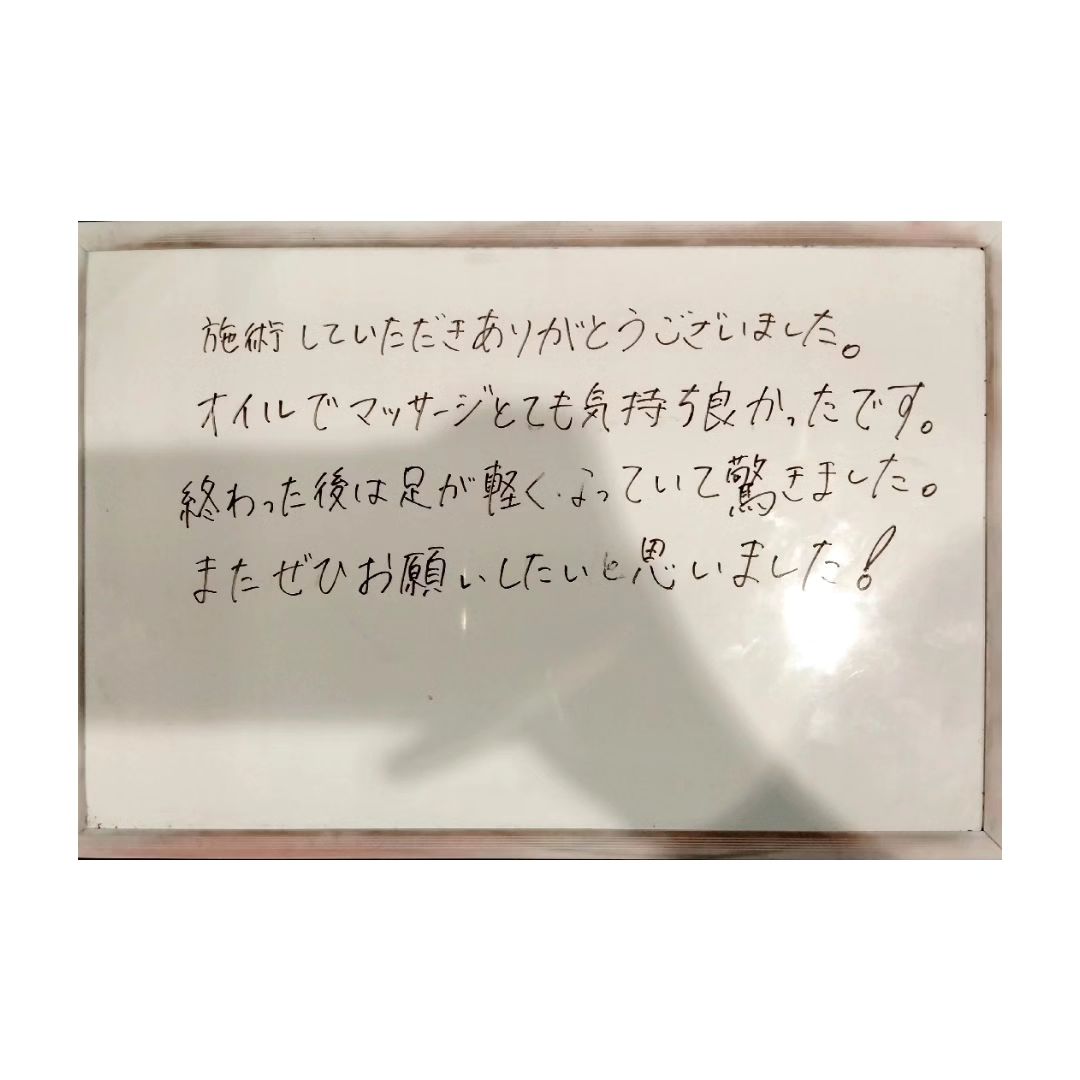 施術していただきありがとうございました。
オイルでマッサージとても気持ち良かったです。
終わった後は足が軽くなっていて驚きました。
またぜひお願いしたいと思いました!